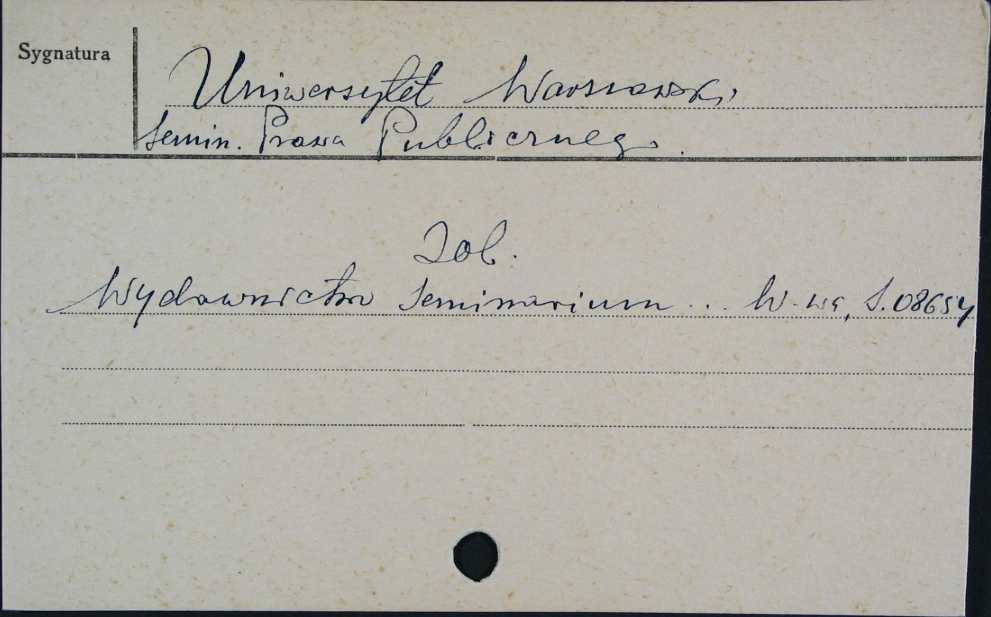 Sygnatura
Uniwersytet Warszawski.
Semin. Prawa Publicznego.
Zob.
Wydawnictwo Seminarium... W-wa, S.08654